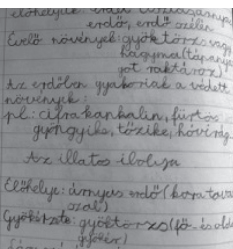 élőhelyük
erdő, erdő szélén
Évelő növények: gyöktörzs vagy
hagyma (tápanya
got raktároz)
Az erdőben gyakoriak a védett
növények:
pl: cifra kankalin, fürtös
gyöngyike, tőzike, hóvirág
Az illatos ibolya
Élőhelye: árnyas erdő (kora tava
szal)
gyöktörzs (fő- és olda
gyökér)